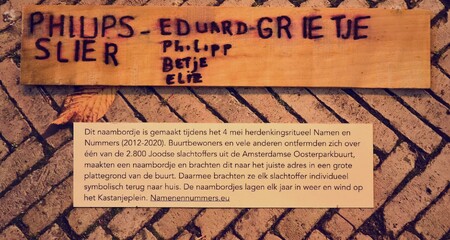 PHILIPS - EDUARD - GRIETJE
SLIER
Philipp
BETJE
ELIE
Dit naambordje is gemaakt tijdens het 4 mei herdenkingsritueel Namen en
Nummers (2012-2020). Buurtbewoners en vele anderen ontfermden zich over
één van de 2.800 Joodse slachtoffers uit de Amsterdamse Oosterparkbuurt,
maakten een naambordje en brachten dit naar het juiste adres in een grote
plattegrond van de buurt. Daarmee brachten ze elk slachtoffer individueel
symbolisch terug naar huis. De naambordjes lagen elk jaar in weer en wind op
het Kastanjeplein. Namenennummers.eu